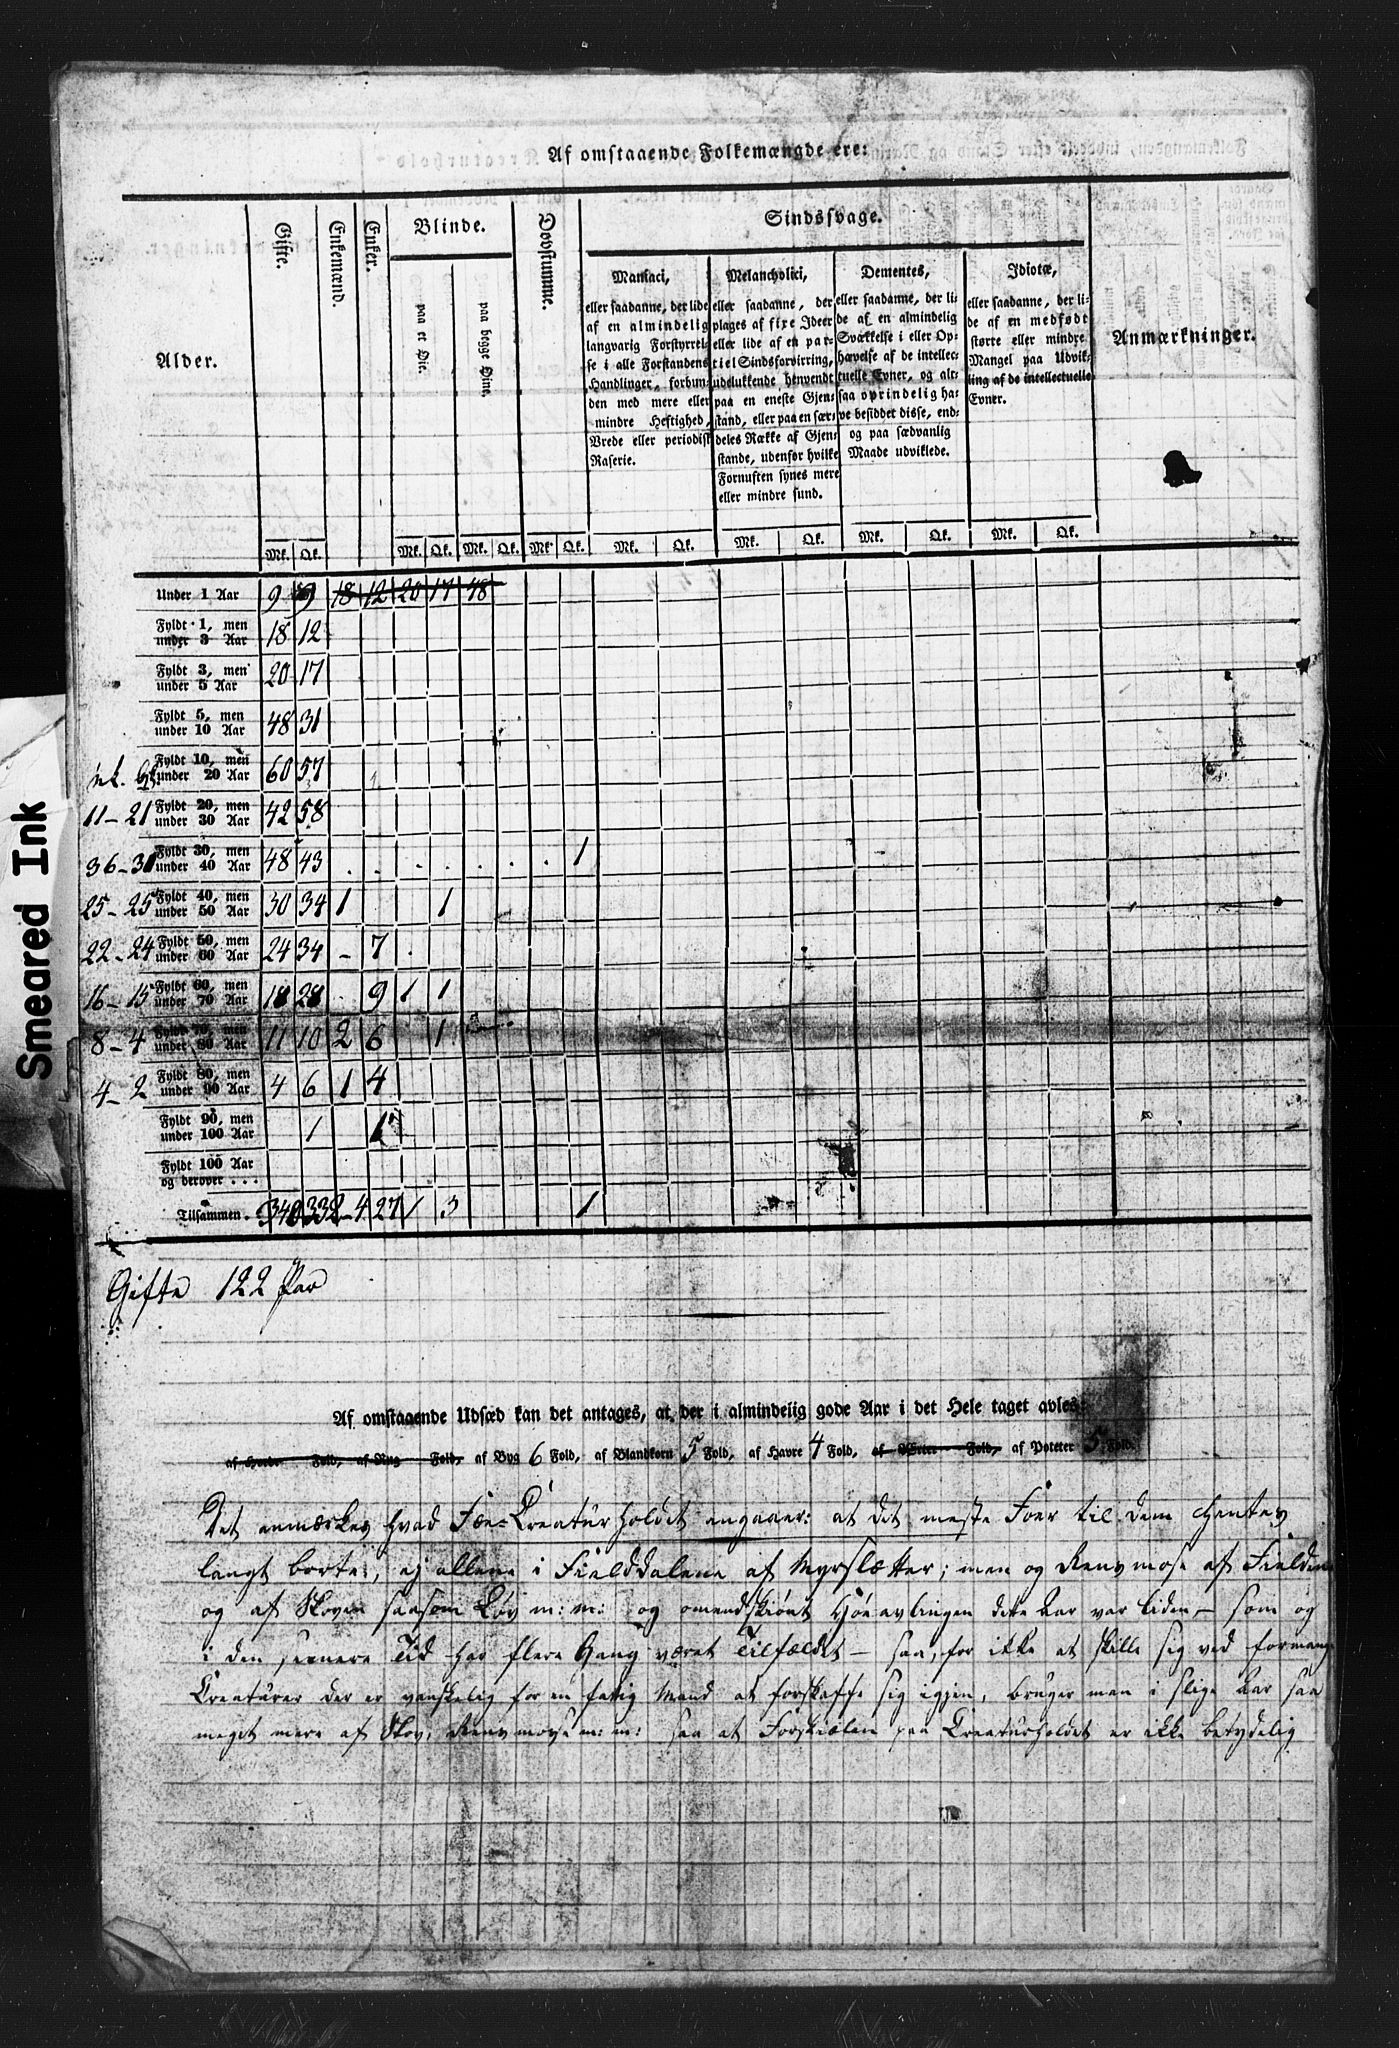 Af omstaaende Folkemængde ere:
Alder.
Gifte.
Enkemænd.
Enker.
Blinde.
paa et Øie.
paa begge Øine.
Døvstumme.
Sindssvage.
Maniaci,
eller saadanne, der lide
af en almindelig
langvarig Forstyrrel-
se i alle Forstandens
Handlinger, forbun-
den med mere eller
mindre Heftighed,
Vrede eller periodisk
Raserie.
Melancholici,
eller saadanne, der
plages af fixe Ideer
eller lide af en par-
tiel Sindsforvirring,
udelukkende henvendt
paa en eneste Gjen-
stand, eller paa en sær-
deles Række af Gjen-
stande, udenfor hvilke
Fornuften synes mere
eller mindre sund.
Dementes,
eller saadanne, der li-
de af en almindelig
Svækkelse i eller Op-
hævelse af de intellec-
tuelle Evner, og alt-
saa oprindelig ha-
ve besiddet disse, end-
og paa sædvanlig
Maade udviklede.
Idiotæ,
eller saadanne, der li-
de af en medfødt
større eller mindre
Mangel paa Udvik-
ling af de intellectuelle
Evner.
Anmærkninger.
Mk. Qk. Mk. Qk. Mk. Qk. Mk. Qk. Mk. Qk. Mk. Qk. Mk. Qk. Mk. Qk.
Under 1 Aar 9 9 18 12 20 17 48
Fyldt 1, men
under 3 Aar 18 12
Fyldt 3, men
under 5 Aar 20 17
Fyldt 5, men
under 10 Aar 48 31
Fyldt 10, men
under 20 Aar 60 57
11-21 Fyldt 20, men
under 30 Aar 42 58
36-31 Fyldt 30, men
under 40 Aar 48 43 . . . . . . . 1
25-25 Fyldt 40, men
under 50 Aar 30 34 1 1
22-24 Fyldt 50, men
under 60 Aar 24 34 - 7 .
16-15 Fyldt 60, men
under 70 Aar 18 28 9 1 1
8-4 Fyldt 70, men
under 80 Aar 11 10 2 6 1
4-2 Fyldt 80, men
under 90 Aar 4 6 1 4
Fyldt 90, men
under 100 Aar 1 1
Fyldt 100 Aar
og derover . . .
Tilsammen . 340 332 - 4 27 1 3 1
Gifte 122 Par
Af omstaaende Udsæd kan det antages, at der i almindelig gode Aar i det Hele taget avles:
af Hvede Fold, af Rug Fold, af Byg 6 Fold, af Blandkorn 5 Fold, af Havre 4 Fold, af Erter Fold, af Poteter 5 Fold.
Det anmærkes hvad Fæe-Creaturholdet angaaer: at det meste Foer til dem hentes
langt borte, ej allene i Fielddalene af Myrslætter; men og Renmose af Fieldene
og af Skoven saasom Løv m: m: og omendskiønt Høeavlingen dette Aar var liden - som og
i den senere Tid har flere Gang været Tilfældet - saa, for ikke at skille sig ved formange
Creaturer der er vanskelig for en fattig Mand at forskaffe sig igjen, bruger man i slige Aar saa
meget mere af Skov, Renmose m: m: saa at Forskiælen paa Creaturholdet er ikke betydelig
Smeared Ink